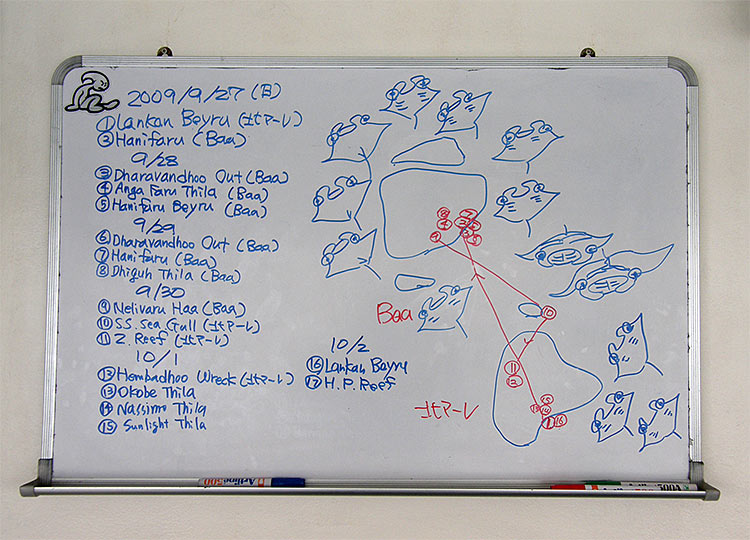 2009/9/27 (日)
① Lankan Beyru (北マーレ)
② Hanifaru (Baa)
9/28
③ Dharavandhoo Out (Baa)
④ Anga Faru Thila (Baa)
⑤ Hanifaru Beyru (Baa)
9/29
⑥ Dharavandhoo Out (Baa)
⑦ Hanifaru (Baa)
⑧ Dhiguh Thila (Baa)
9/30
⑨ Nelivaru Haa (Baa)
⑩ S.S. Sea Gull (北マーレ)
⑪ Z. Reef (北マーレ)
10/1
⑫ Hembadhoo Wreck (北マーレ)
⑬ Okobe Thila
⑭ Nassimo Thila
⑮ Sunlight Thila
10/2
⑯ Lankan Beyru
⑰ H.P. Reef
Baa
⑩
⑪
北マーレ
Artline 500
Artline 500A